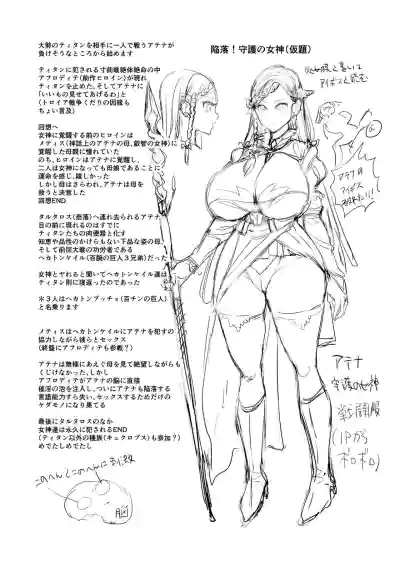 陥落！守護の女神(仮題)
大勢のティタンを相手に一人で戦うアテナが
負けそうなところから始めます
ティタンに犯される寸前絶体絶命の中
アフロディテ(前作ヒロイン)が現れ
ティタンを止めた。そしてアテナに
「いいもの見せてあげるわ」と
(トロイア戦争くだりの因縁も
ちょい言及)
回想へ
女神に覚醒する前のヒロインは
メティス(神話上のアテナの母、叡智の女神)に
覚醒した母親に憧れていた
のち、ヒロインはアテナに覚醒し、
二人は女神になっても母娘であることに
運命を感じ、嬉しかった
しかし母はさらわれ、アテナは母を
救うと決意した
回想END
タルタロス(奈落)へ連れ去られるアテナ
目の前に現れるのはすでに
ティタンたちの肉便器と化す
知恵や品性のかけらもない下品な姿の母、
そして前回大戦の功労者である
ヘカトンケイル(百腕の巨人3兄弟)だった
女神とヤれると聞いてヘカトンケイル達は
ティタン側に寝返ったのであった
＊3人はヘカトンブッチョ(百チンの巨人)
と名乗ります
メティスはヘカトンケイルにアテナを犯すの
協力しながら彼らとセックス
(終盤にアフロディテも参戦？)
アテナは無様にあえぐ母を見て絶望しながらも
くじけなかった、しかし
アフロディアがアテナの脳に直接
催淫の泡を注入し、ついにアテナも陥落する
言語能力すら失い、セックスするためだけの
ケダモノになり果てる
最後にタルタロスのなか
女神達は永久に犯されるEND
(ティタン以外の種族(キュクロプス)も参加？)
めでたしめでたし
処女膜と書いて
アイギスと読む
アテナの
アイギス
アテナ
守護の女神
戦闘服
(1Pから
ボロボロ)
脳